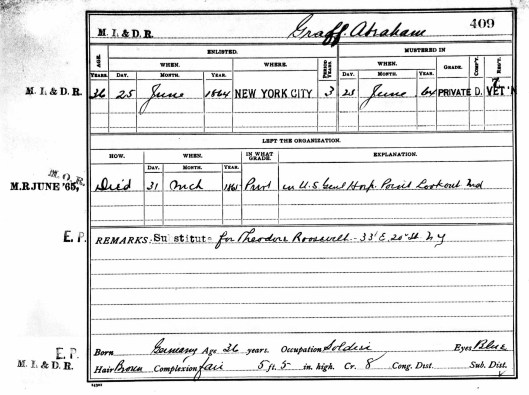 409
M. I. & D. R. Graff, Abraham
ENLISTED. MUSTERED IN
AGE. WHEN. WHERE. PERIOD YEARS. WHEN. GRADE. COMP'Y. REG'T.
YEARS. DAY. MONTH. YEAR. DAY. MONTH. YEAR.
M. I. & D. R. 36 25 June 1864 NEW YORK CITY 3 25 June 64 PRIVATE D. 7 VET'N
LEFT THE ORGANIZATION.
HOW. WHEN. IN WHAT GRADE. EXPLANATION.
DAY. MONTH. YEAR.
M. O. R.
M.R. JUNE '65, Died 31 Mch 1865 Privt in U.S. Genl Hosp. Point Lookout Md
E. P. REMARKS: Substitute for Theodore Roosevelt - 33 E. 20" St. N Y
E. P. Born Germany Age 36 years. Occupation Soldier Eyes Blue
M. I. & D. R. Hair Brown Complexion fair 5 ft. 5 in. high. Cr. 8 Cong. Dist. Sub. Dist.